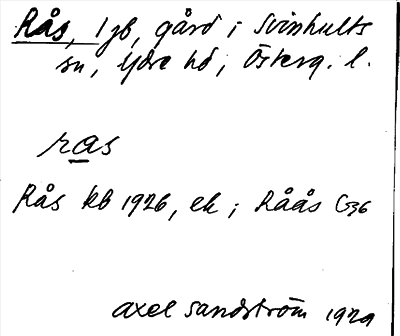 Rås, 1 gb, gård i Svinhults
sn, Ydre hd, Österg. l.
ras
Rås kb 1926, ek; Råås G36
Axel Sandström 1929